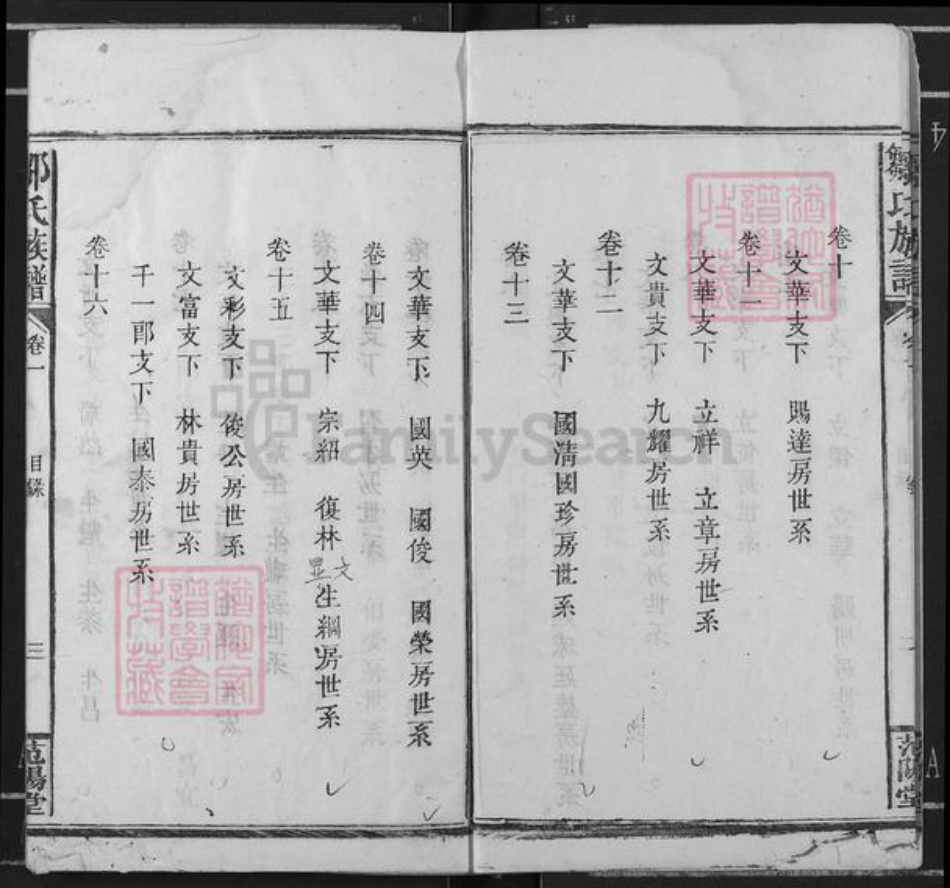 卷十
文華支下 賜達房世系
卷十一
文華支下 立祥 立章房世系
文貴支下 九耀房世系
卷十二
文華支下 國清國珍房世系
卷十三
文華支下 國英 國俊 國榮房世系
卷十四
文華支下 宗紹 復林 生綱房世系
文
卷十五
文彩支下 俊公房世系
文富支下 林貴房世系
千一郎支下 國泰房世系
卷十六
鄒氏族譜 卷一 目錄 三 范陽堂
氏族譜
范陽堂
猶他家譜學會收藏
猶他家譜學會收藏
FamilySearch